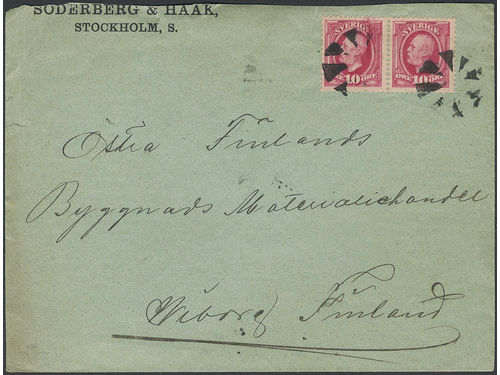 SÖDERBERG & HAAK,
STOCKHOLM, S.
SVERIGE SVERIGE
10 ÖRE ÖRE 10 ÖRE
Östra Finlands
Byggnads Materialiehandel
Wiborg Finland